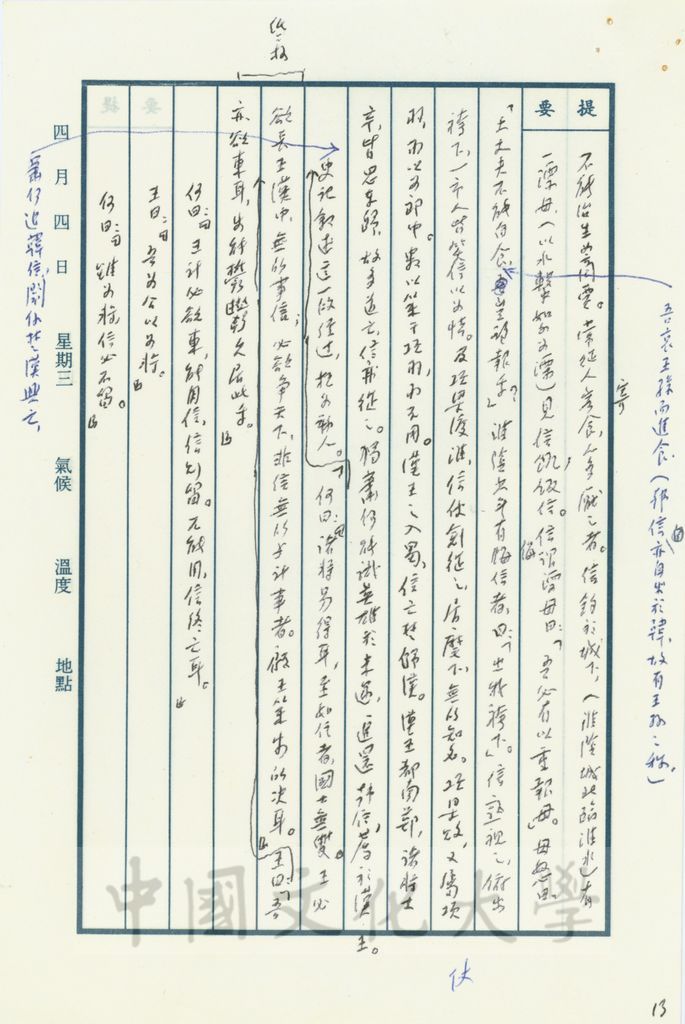 終板
提
要
不能治生為商賈。常從人寄食，人多厭之者。信釣於城下，（淮陰城北臨淮水）有
一漂母，（以水擊絮為漂）見信飢，飯信。信謂漂母曰：「吾必有以重報母。」母怒曰：
「大丈夫不能自食，豈望報乎？」淮陰少年有侮信者，曰：「出我袴下。」信孰視之，俯出
袴下，一市人皆笑信以為怯。及項梁渡淮，信仗劍從之，居麾下，無所知名。項梁敗，又屬項
羽，羽以為郎中。數以策干項羽，羽不用。漢王之入蜀，信亡楚歸漢。漢王都南鄭，諸將士
卒，皆思東歸，故多道亡，信亦從之。獨蕭何能識英雄於未遇，追還韓信，薦於漢王。
史記敘述這一段經過，極為動人。「何曰：諸將易得耳，至如信者，國士無雙。王必
欲長王漢中，無所事信；必欲爭天下，非信無所與計事者。顧王策安所決耳。」王曰：「吾
亦欲東耳，安能鬱鬱久居此乎。」
何曰：「王計必欲東，能用信，信則留。不能用，信終亡耳。」
王曰：「吾為公以為將。」
何曰：「雖為將，信必不留。」
四月四日 星期三 氣候 溫度 地點
蕭何追韓信，關係楚漢興亡，
吾哀王孫而進食（韓信亦自出於韓，故有王孫之稱）
寄
侮
仗
中國文化大學
13